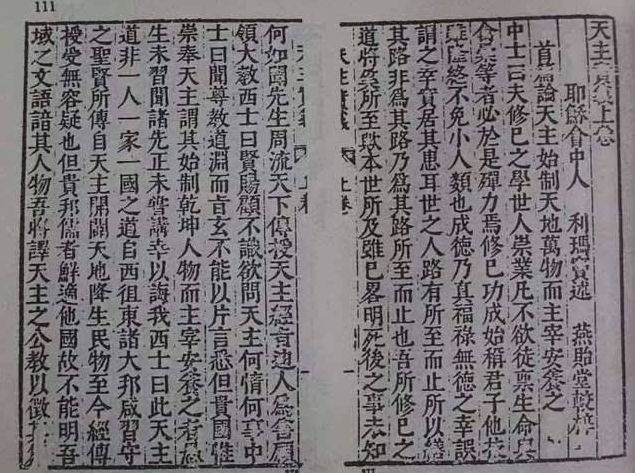 111
天主實義上卷
耶穌會中人 利瑪竇述 燕貽堂較梓
首篇論天主始制天地萬物而主宰安養之
中士曰夫修己之學世人崇業凡不欲徒稟生命與
禽彙等者必於是殫力焉修己功成始稱君子他技
雖隆終不免小人類也成德乃真福祿無德之幸誤
謂之幸實居其患耳世之人路有所至而止所以繕
其路非為其路乃為其路所至而止也吾所修己之
道將奚所至歟本世所及雖已畧明死後之事未知
天主實義 上卷
天主實義 上卷
何如聞先生周流天下傳授天主經旨迪人為善願
領大教西士曰賢賜顧不識欲問天主何情何事中
士曰聞尊教道淵而旨玄不能以片言悉但貴國惟
崇奉天主謂其始制乾坤人物而主宰安養之者愚
生未習聞諸先正未嘗講幸以誨我西士曰此天主
道非一人一家一國之道自西徂東諸大邦咸習守
之聖賢所傳自天主開闢天地降生民物至今經傳
授受無容疑也但貴邦儒者鮮適他國故不能明吾
域之文語諳其人物吾將譯天主之公教以徵其